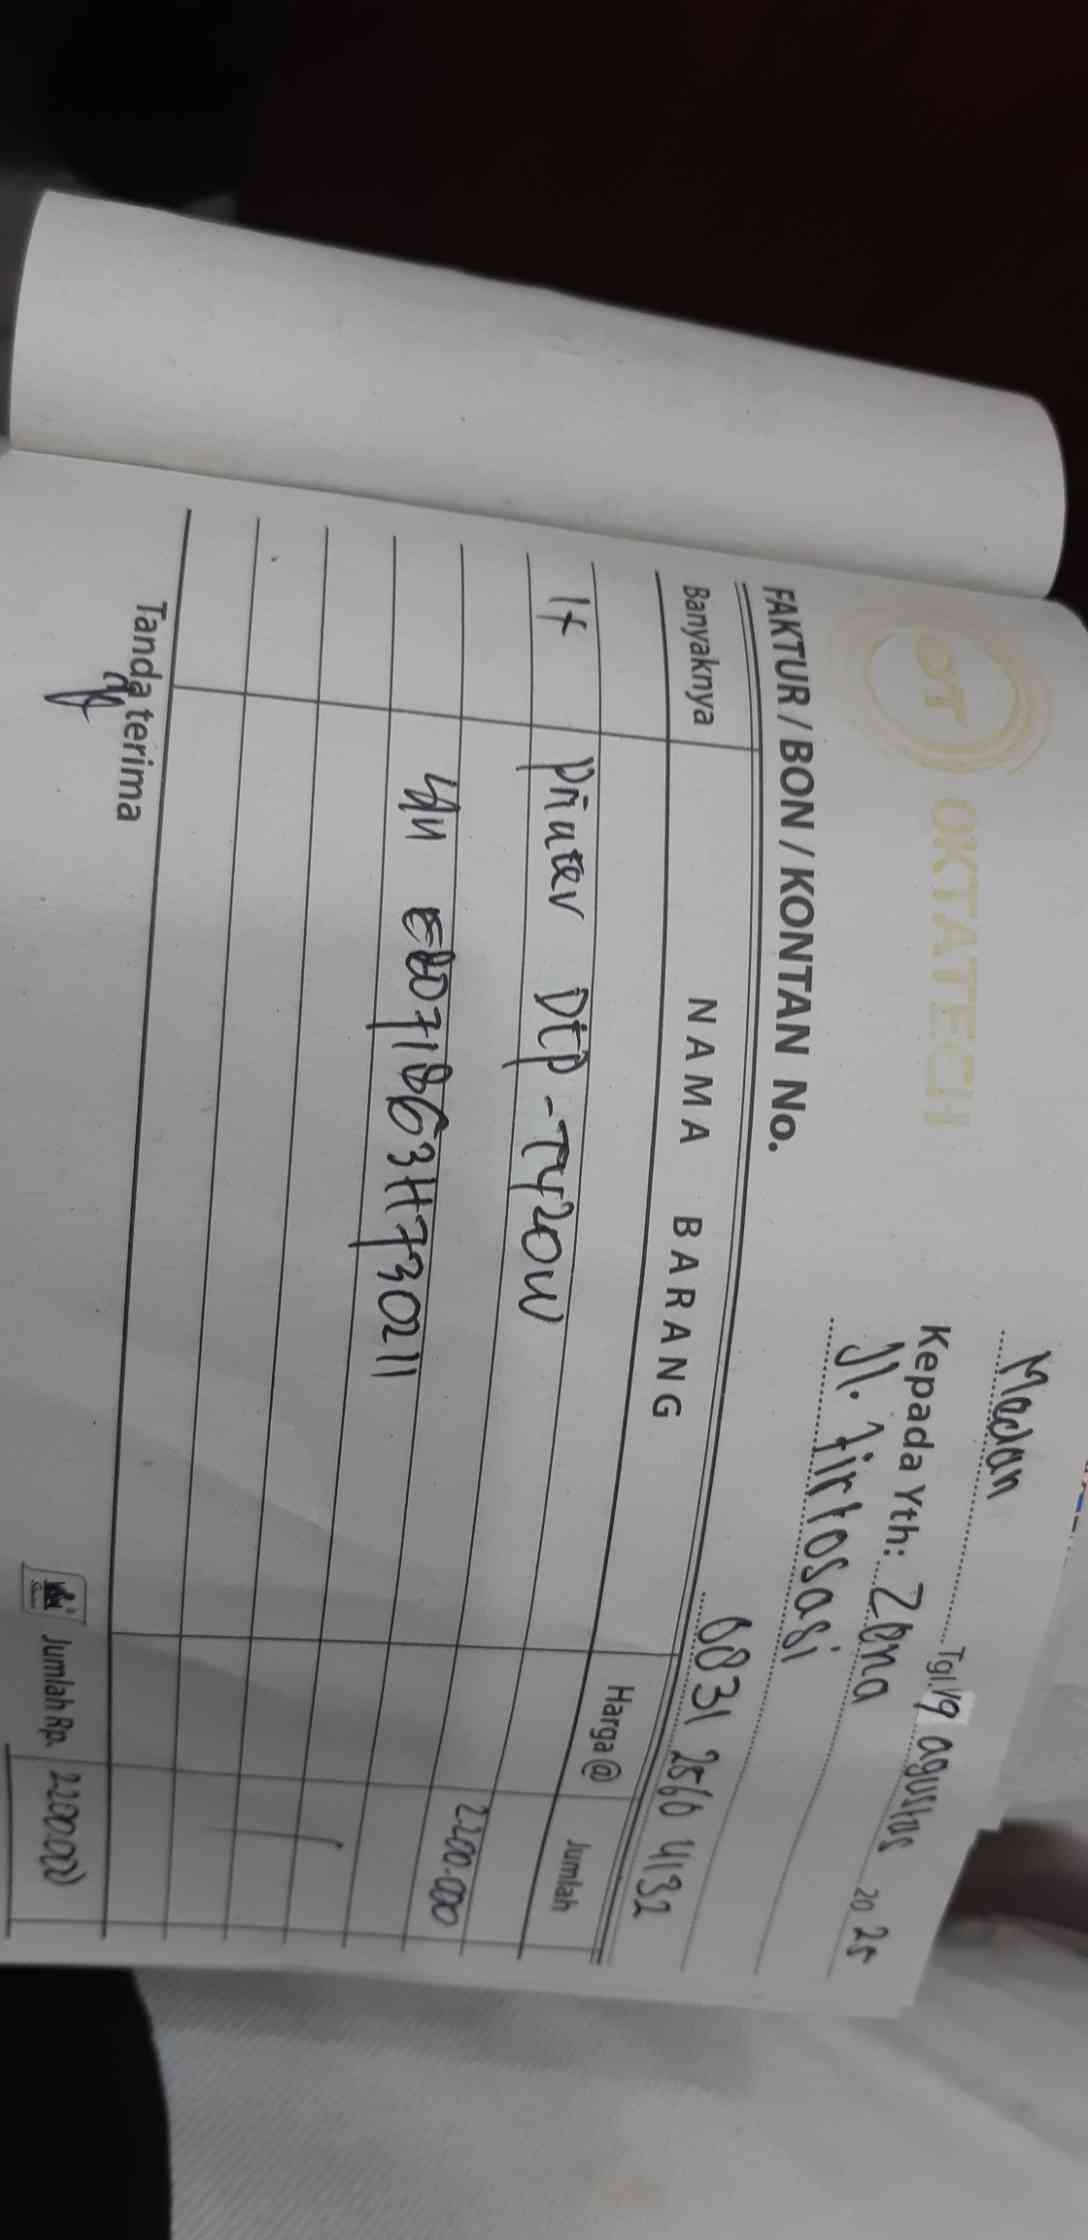 OT OKTATECH
Medan Tgl. 19 agustus 2025
Kepada Yth: Zona
Jl. Tirtosasi
0831 2560 4132
FAKTUR / BON / KONTAN No.
Banyaknya NAMA BARANG Harga@ Jumlah
1x Printer DCP-T420W 2200.000
S/N E80718G3H730211
Tanda terima
Jumlah Rp. 2.200.000